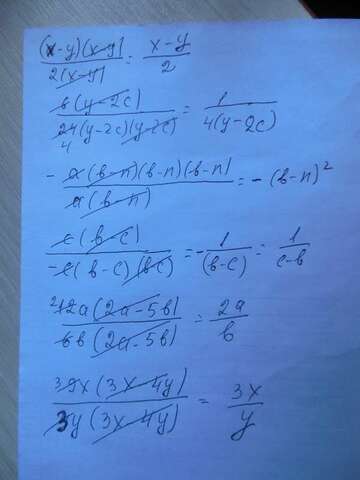 (x-y)(x-y)/2(x-y) = x-y/2
6(y-2c)/24(y-2c)(y-2c) 4 = 1/4(y-2c)
- a(b-n)(b-n)(b-n)/a(b-n) = -(b-n)²
c(b-c)/-c(b-c)(b-c) = -1/(b-c) = 1/c-b
²12a(2a-5b)/6b(2a-5b) = 2a/b
39x(3x-4y)/3y(3x-4y) = 3x/y